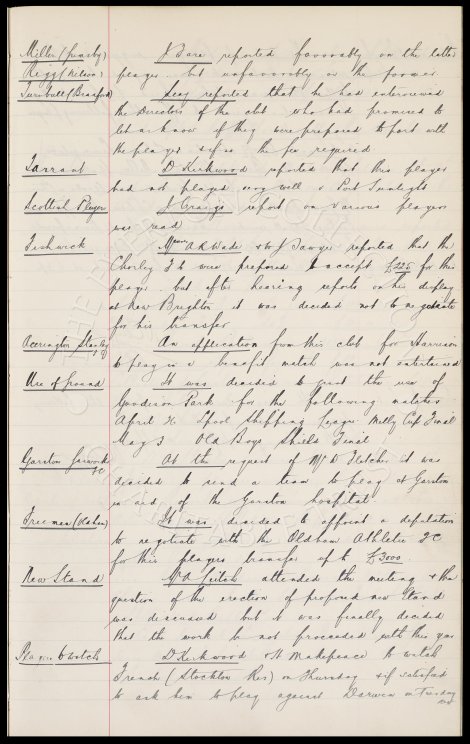 Miller (Grimsby) J Dare reported favorably on the latter
Rigg (Nelson) player but unfavorably on the former
Turnbull (Bradford) Leay reported that he had interviewed
the Directors of the club who had promised to
let us know if they were prepared to part with
the player & if so the fee required
Tarrant D Kirkwood reported that this player
had not played very well v Port Sunlight
Scottish Players J Craigs report on various players
was read
Fishwick Messrs A R Wade & W J Sawyer reported that the
Chorley F C were prepared to accept £225 for this
player but after hearing reports on his display
at New Brighton it was decided not to negotiate
for his transfer
Accrington Stanley An application from this club for Harrison
F C to play in a benefit match was not entertained
Use of ground It was decided to grant the use of
Goodison Park for the following matches
April 26 Lpool Shipping League Melly Cup Final
May 3 Old Boys Shield Final
Garston Gasworks At the request of Mr W Fletcher it was
FC decided to send a team to play at Garston
in aid of the Garston hospital
Freeman (Oldham) It was decided to appoint a deputation
to negotiate with the Oldham Athletic FC
for this players transfer up to £3000.
New Stand Mr A Leitch attended the meeting & the
question of the erection of proposed new stand
was discussed but it was finally decided
that the work be not proceeded with this year
Players to watch D Kirkwood & H Makepeace to watch
French (Stockton Res) on Thursday & if satisfied
to ask him to play against Darwen on Tuesday
next